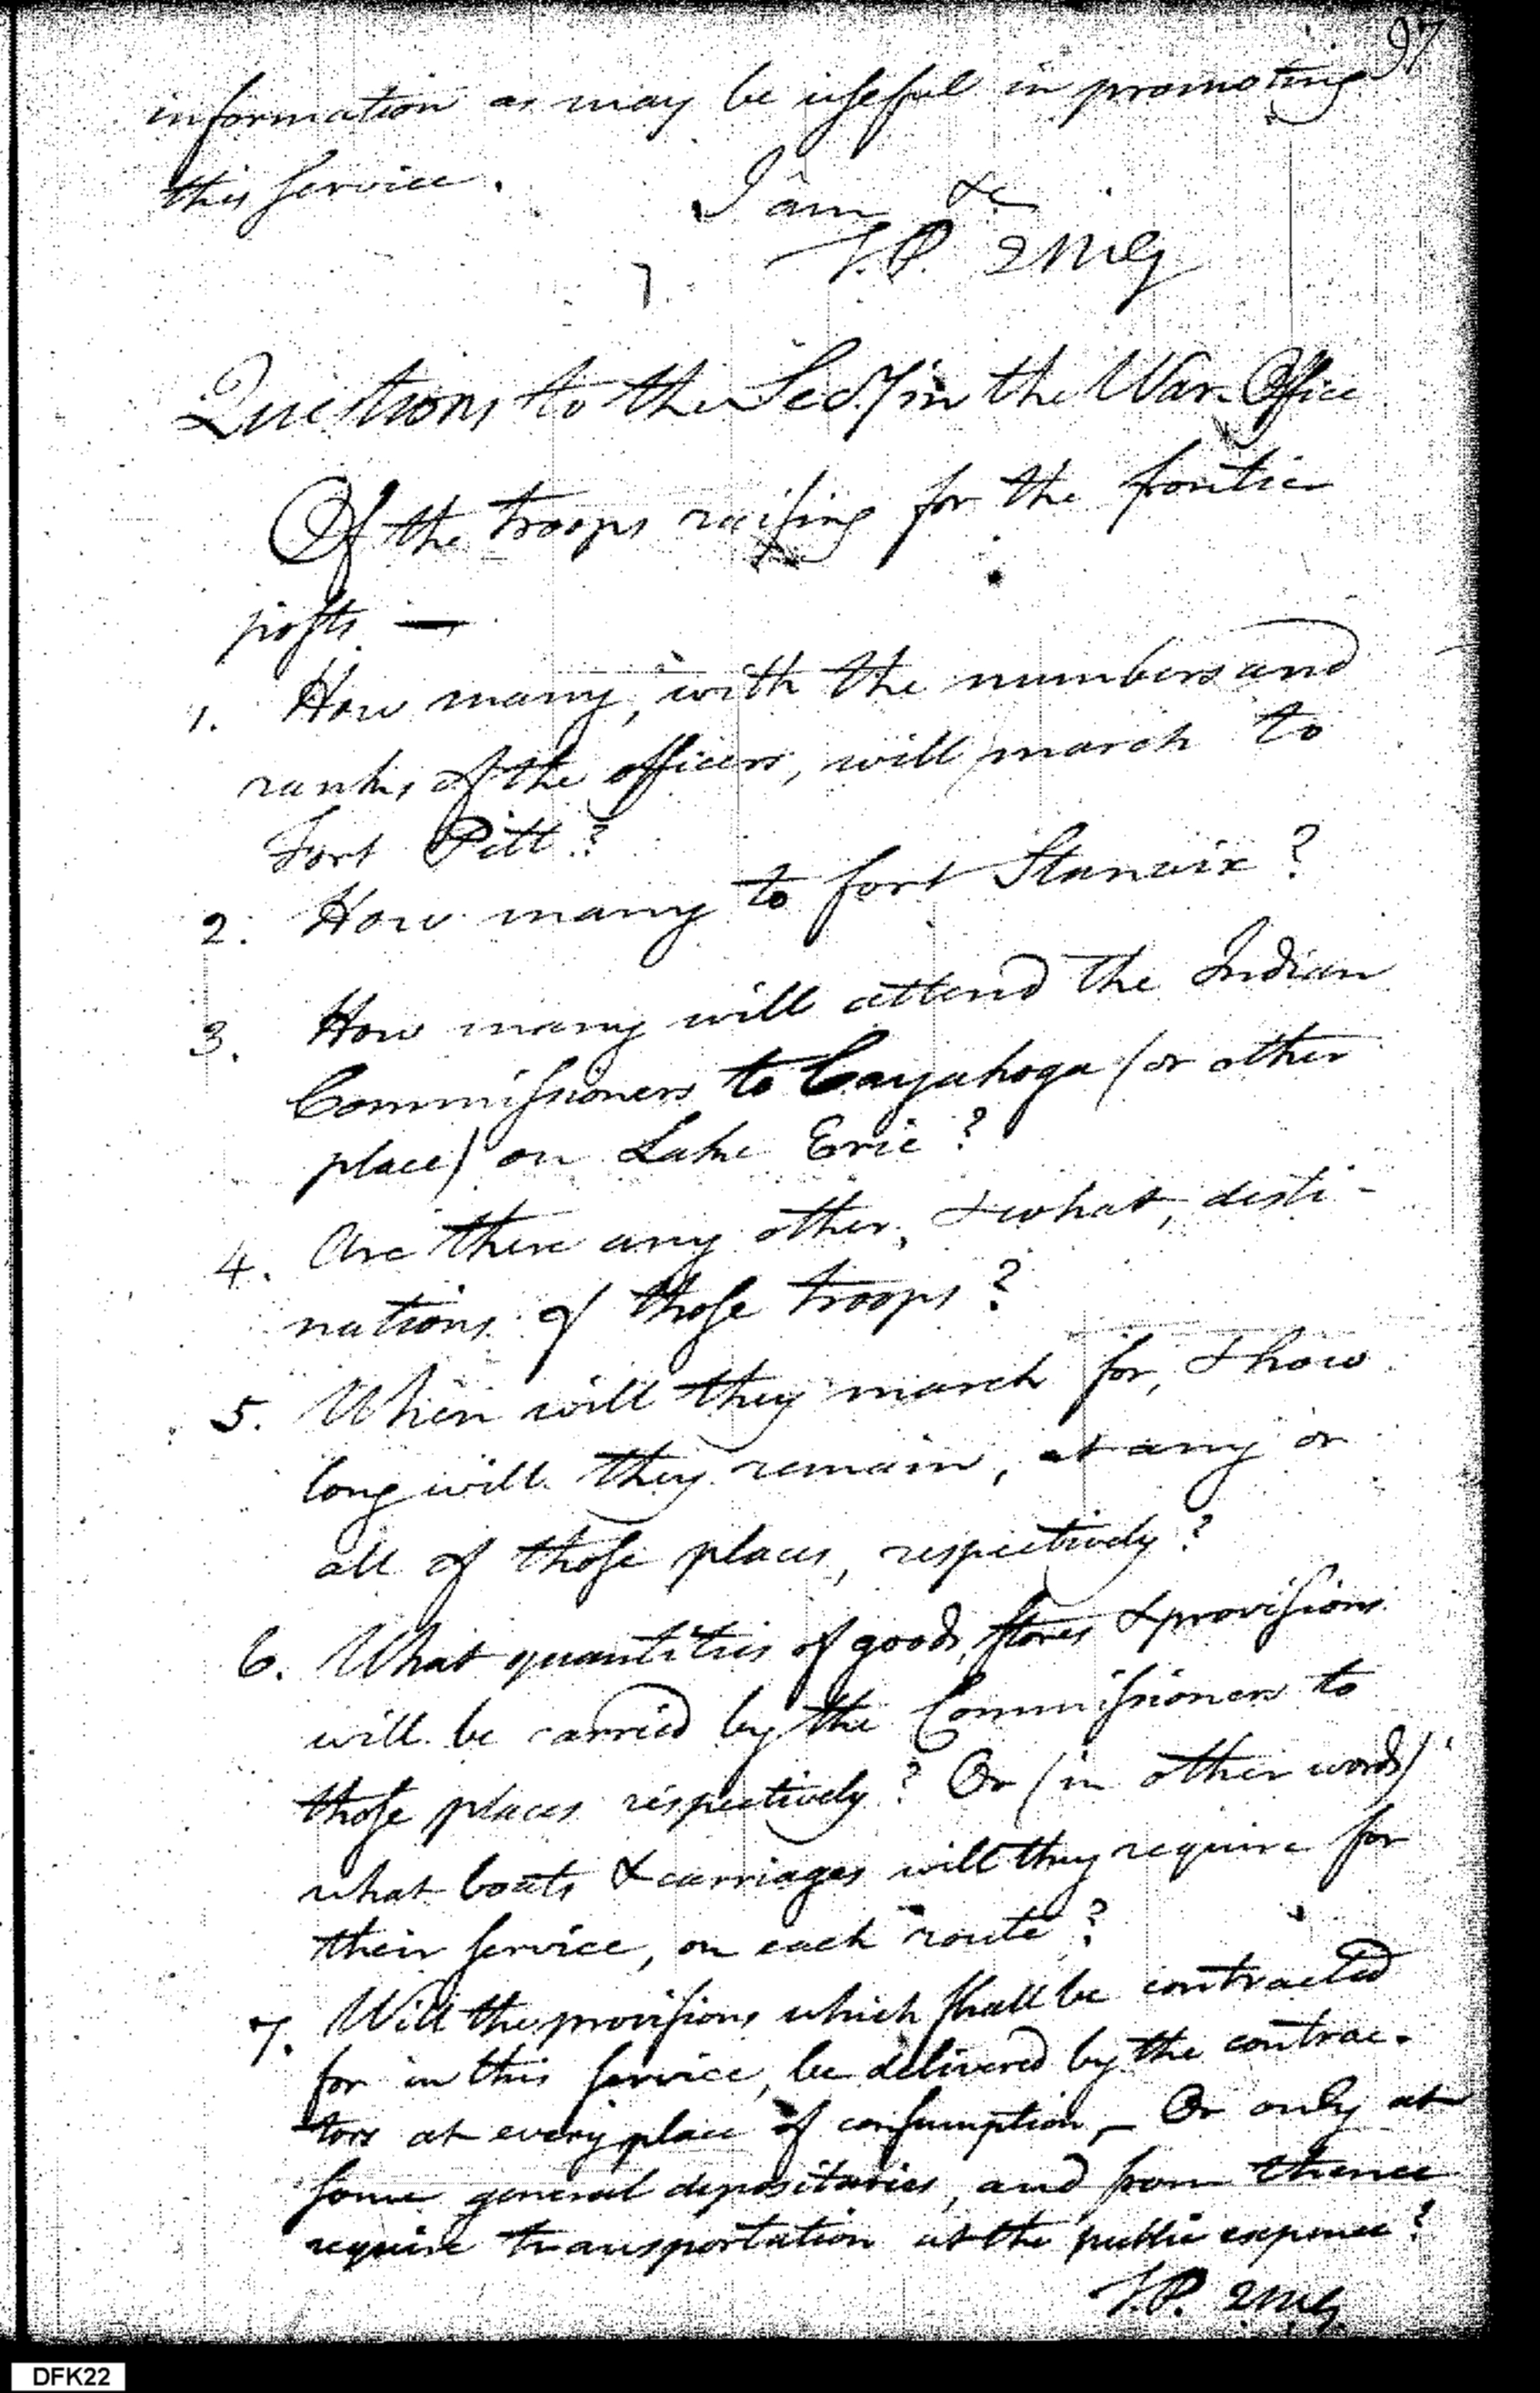 97
information as may be useful in promoting
this service.
I am &c
T.P. QMG
Questions to the Secy in the War-Office
Of the troops raising for the frontier
posts —
1. How many, with the numbers and
ranks of the officers, will march to
Fort Pitt?
2. How many to fort Stanwix?
3. How many will attend the Indian
Commissioners to Cayahoga (or other
place) on Lake Erie?
4. Are there any other, & what, desti-
nations of those troops?
5. When will they march for, & how
long will they remain, at any or
all of those places, respectively?
6. What quantities of goods, stores & provisions
will be carried by the Commissioners to
those places respectively? Or (in other words)
what boats & carriages will they require for
their service, on each route?
7. Will the provisions which shall be contracted
for in this service, be delivered by the contrac-
tors at every place of consumption, – Or only at
some general depositaries, and from thence
require transportation at the public expence?
T.P. QMG.
DFK22